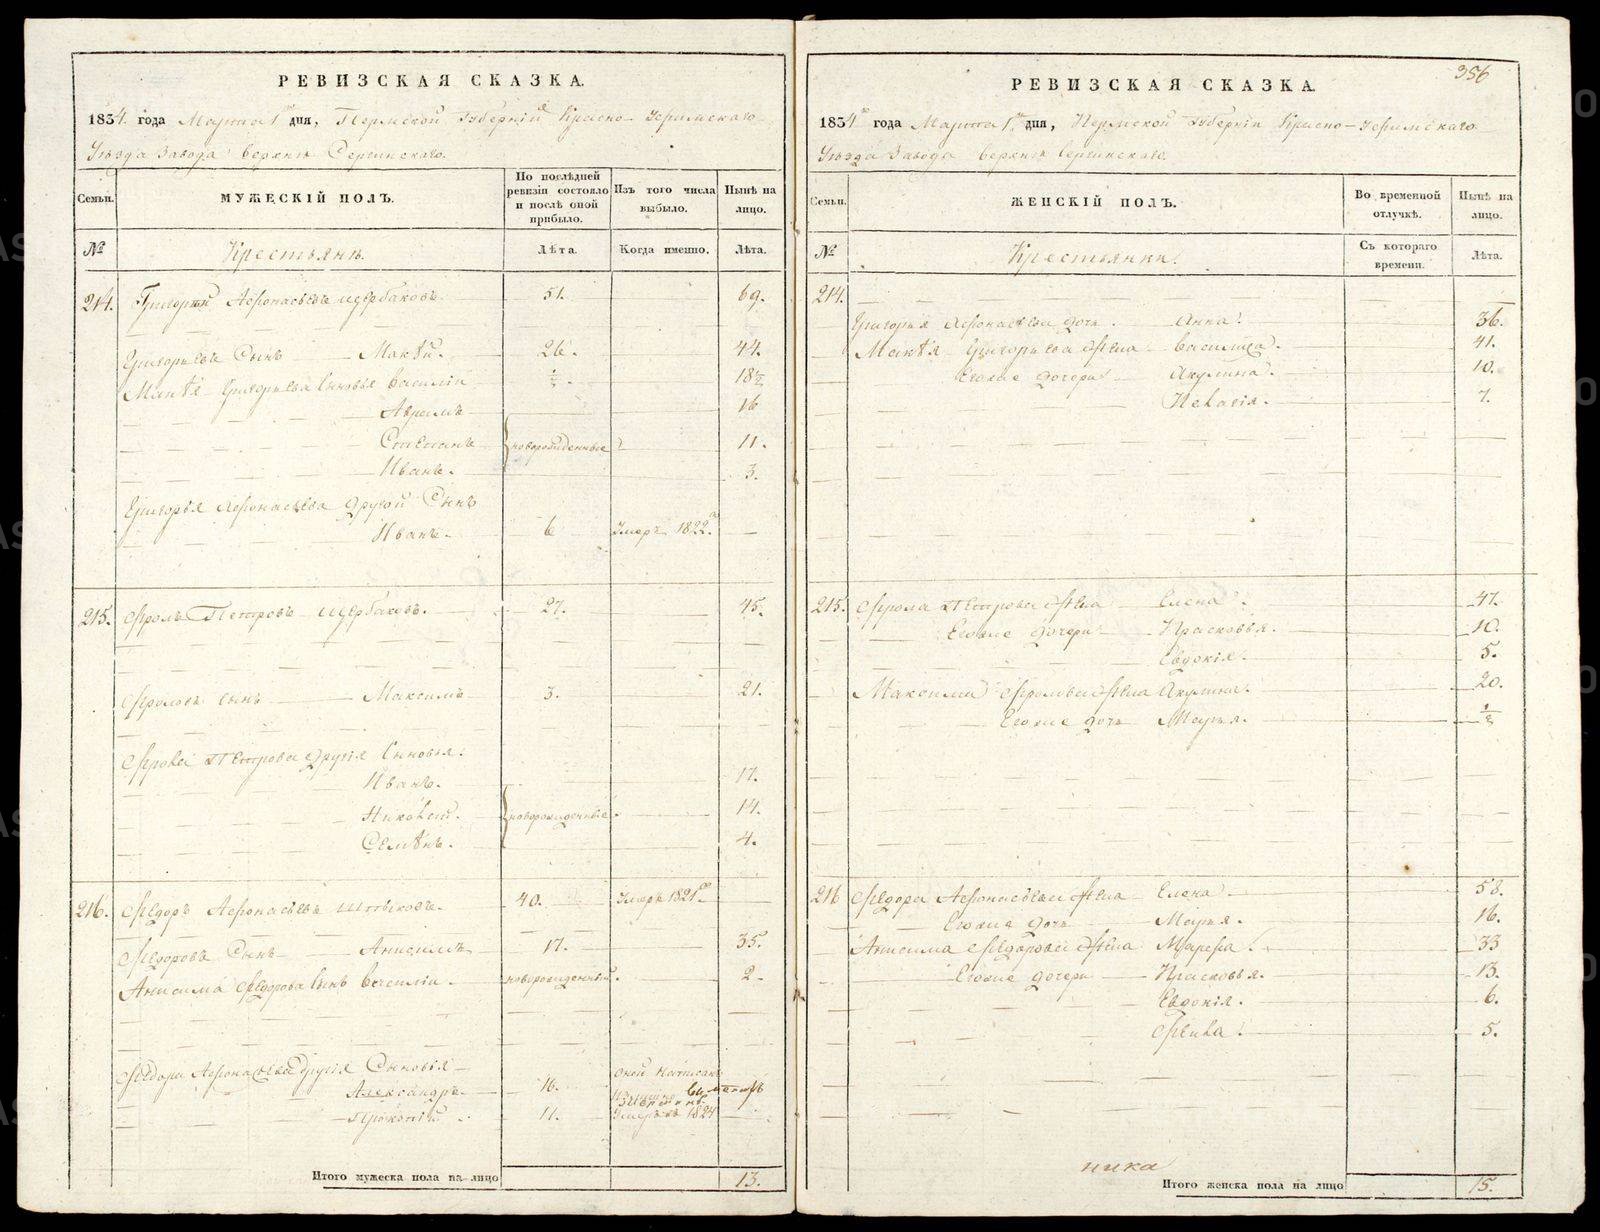 РЕВИЗСКАЯ СКАЗКА.
1834. года Марта 1 дня, Пермской Губернiи Красно-Уфимскаго
Уезда Завода Верхне Сергинскаго.
Семьи.
МУЖЕСКIЙ ПОЛЪ.
По послѣдней ревизiи состояло и послѣ оной прибыло.
Изъ того числа выбыло.
Нынѣ на лицо.
№
Крестьяне.
Лѣта.
Когда именно.
Лѣта.
214. Григорiй Афонасьевъ Щербаковъ 51. 69.
Григорьевъ Сынъ Макѣй. 26. 44.
Макѣя Григорьева Сыновье Василiй ½. 18½
Аврамъ 16
Степанъ новорожденные 11.
Иванъ. 3.
Григорья Афонасьева другой Сынъ
Иванъ. 6 Умеръ 1822.
215. Фролъ Петровъ Щербаковъ. 27. 45.
Фроловъ сынъ Максимъ 3. 21.
Фрола Петрова другiя Сыновья.
Иванъ. 17.
Николай. новорожденные. 14.
Семѣнъ. 4.
216. Федоръ Афонасьевъ 40. Умеръ 1821
Федоровъ Сынъ Анисимъ 17. 35.
Анисима Федорова Сынъ Василiй. новорожденный. 2
Федора Афонасьева другiя Сыновья
Александръ 16. оной написан
Прокопiй 11. Умеръ 1824
Итого мужеска пола на лицо 13.
356
РЕВИЗСКАЯ СКАЗКА.
1834 года Марта 1 дня, Пермской Губернiи Красно-Уфимскаго
Уезда Завода Верхне Сергинскаго.
Семьи.
ЖЕНСКIЙ ПОЛЪ.
Во временной отлучкѣ.
Нынѣ на лицо.
№
Крестьянки.
Съ котораго времени.
Лѣта.
214.
Григорья Афонасьева дочь. Анна. 36.
Макѣя Григорьева жена Василиса. 41.
Егоже дочери Акулина. 10.
Пелагiя. 7.
215. Фрола Петрова жена Елена. 47.
Егоже дочери Прасковья. 10.
Евдокiя. 5.
Максима Фролова жена Акулина. 20.
Егоже дочь Марья. ½
216 Федора Афонасьева жена Елена 58.
Егоже дочь Марья. 16.
Анисима Федорова жена Марфа. 33
Егоже дочери Прасковья. 13.
Евдокiя. 6.
Фекла. 5.
Итого женска пола на лицо 15.